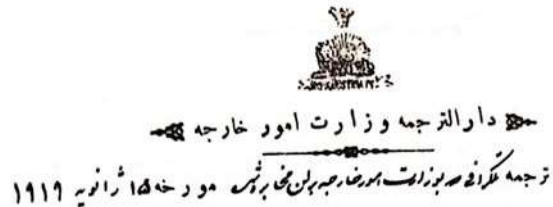 دارالترجمه وزارت امور خارجه
ترجمه تلگرافی که بوزارت امور خارجه برلن مخابره مورخه ۱۵ ژانویه ۱۹۱۹